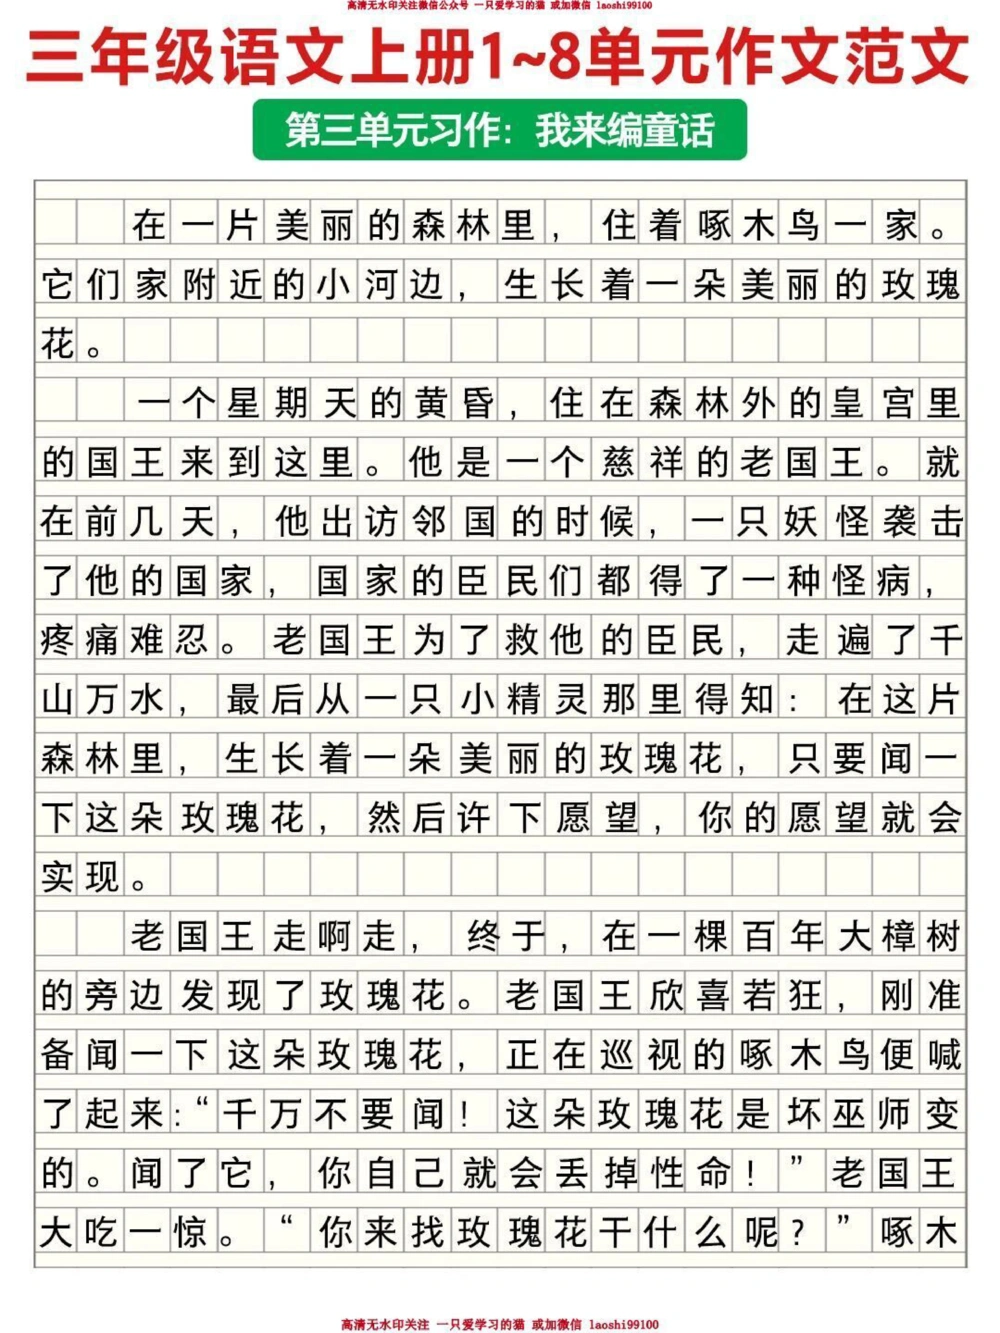 高清无水印关注微信公众号 一只爱学习的猫 或加微信 laoshi99100
三年级语文上册1~8单元作文范文
第三单元习作：我来编童话
在一片美丽的森林里，住着啄木鸟一家。
它们家附近的小河边，生长着一朵美丽的玫瑰
花。
一个星期天的黄昏，住在森林外的皇宫里
的国王来到这里。他是一个慈祥的老国王。就
在前几天，他出访邻国的时候，一只妖怪袭击
了他的国家，国家的臣民们都得了一种怪病，
疼痛难忍。老国王为了救他的臣民，走遍了千
山万水，最后从一只小精灵那里得知：在这片
森林里，生长着一朵美丽的玫瑰花，只要闻一
下这朵玫瑰花，然后许下愿望，你的愿望就会
实现。
老国王走啊走，终于，在一棵百年大樟树
的旁边发现了玫瑰花。老国王欣喜若狂，刚准
备闻一下这朵玫瑰花，正在巡视的啄木鸟便喊
了起来：“千万不要闻！这朵玫瑰花是坏巫师变
的。闻了它，你自己就会丢掉性命！”老国王
大吃一惊。“你来找玫瑰花干什么呢？”啄木
高清无水印关注 一只爱学习的猫 或加微信 laoshi99100